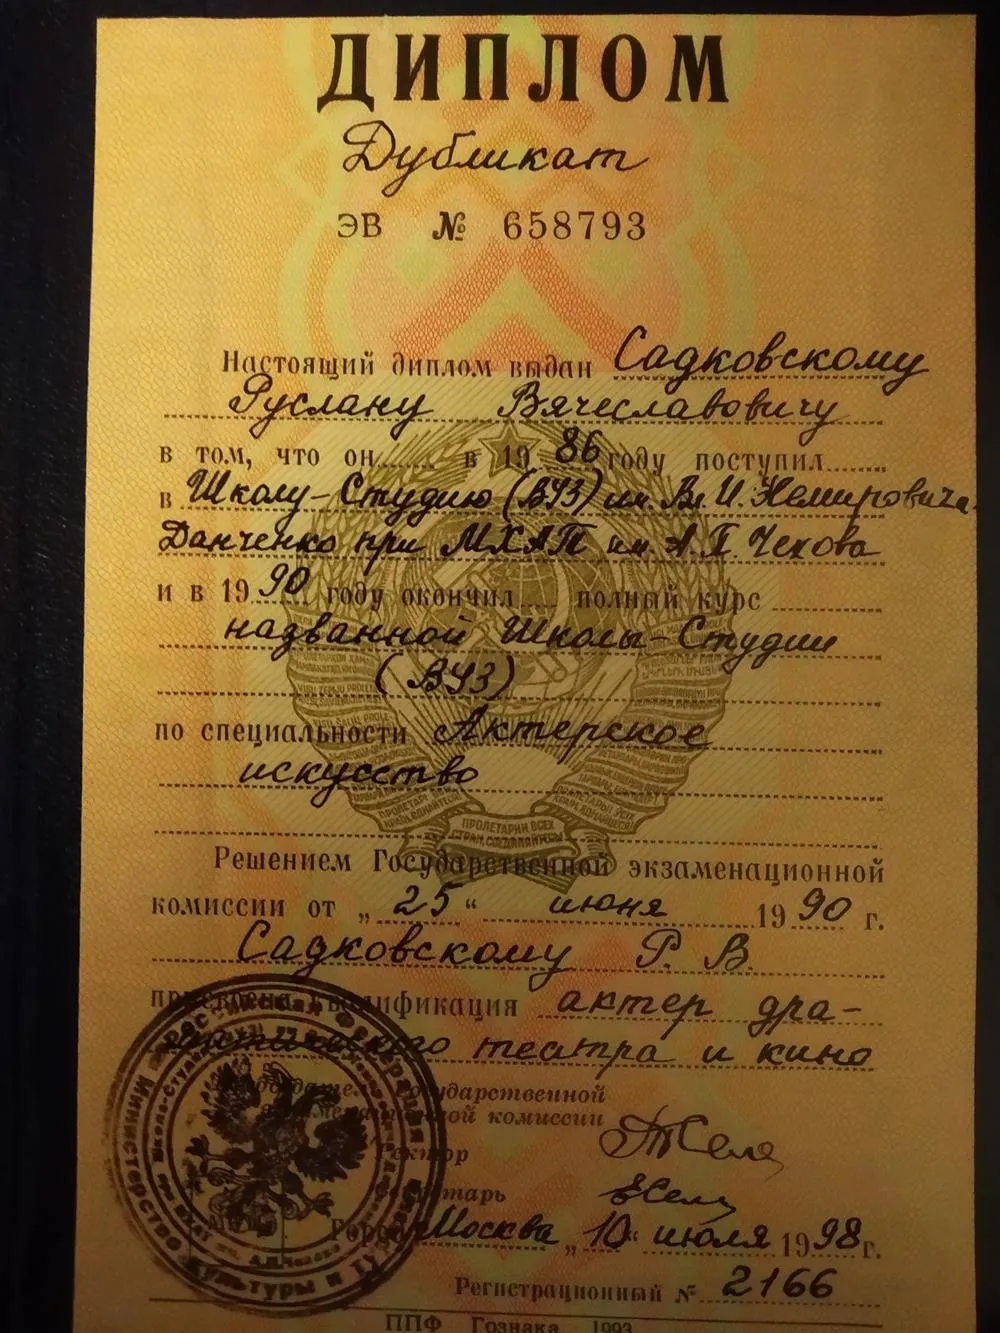 ДИПЛОМ
Дубликат
ЭВ № 658793
Настоящий диплом выдан Садковскому
Руслану Вячеславовичу
в том, что он в 1986 году поступил
в Школу-Студию (ВУЗ) им. Вл. И. Немировича-
Данченко при МХАТ им. А. П. Чехова
и в 1990 году окончил полный курс
названной Школы-Студии
(ВУЗ)
по специальности Актерское
искусство
ПРОЛЕТАРИИ ВСЕХ
СТРАН, СОЕДИНЯЙТЕСЬ
Решением Государственной экзаменационной
комиссии от „25“ июня 1990 г.
Садковскому Р. В.
присвоена квалификация актер дра-
матического театра и кино
Председатель Государственной
экзаменационной комиссии
Ректор
Секретарь
Город Москва „10“ июля 1998 г.
Регистрационный № 2166
ППФ Гознака 1993
Министерство культуры
Российская Федерация